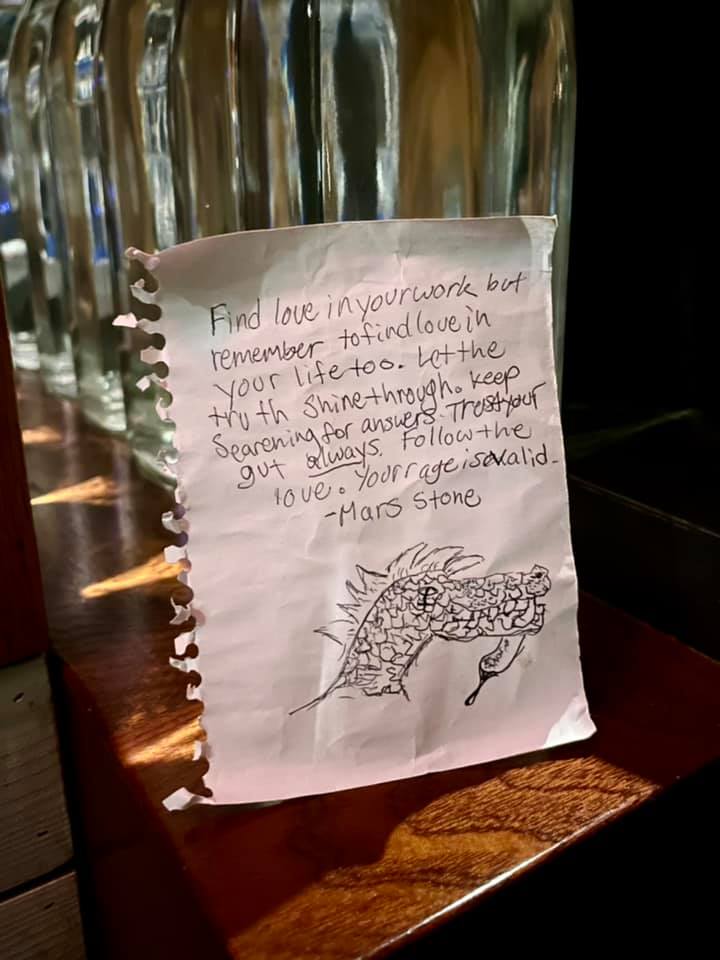 Find love in your work but
remember to find love in
your life too. Let the
truth shine through. Keep
Searching for answers. Trust your
gut always. Follow the
love. Your rage is valid.
-Mars Stone